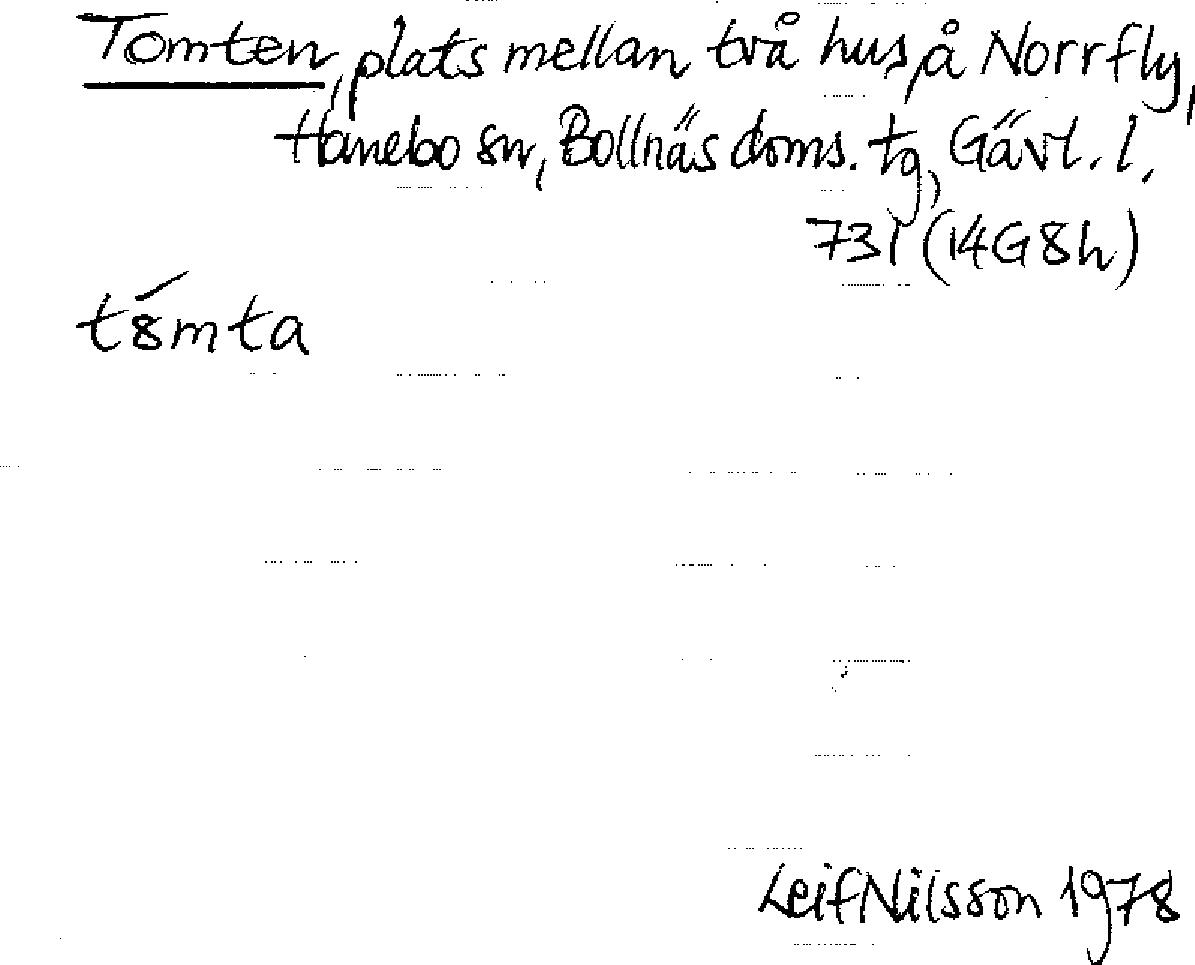 Tomten, plats mellan två hus, å Norrfly,
Hanebo sn, Bollnäs doms. tg, Gävl. l.
731 (14G8h)
t8́mta
Leif Nilsson 1978